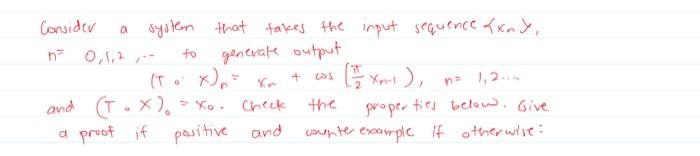 Consider a system that takes the input sequence {xn},
n= 0,1,2,... to generate output
(T ∘ x)n = xn + cos [π/2 xn-1), n= 1,2...
and (T ∘ x)0 = x0. Check the properties below. Give
a proof if positive and counter example if otherwise: